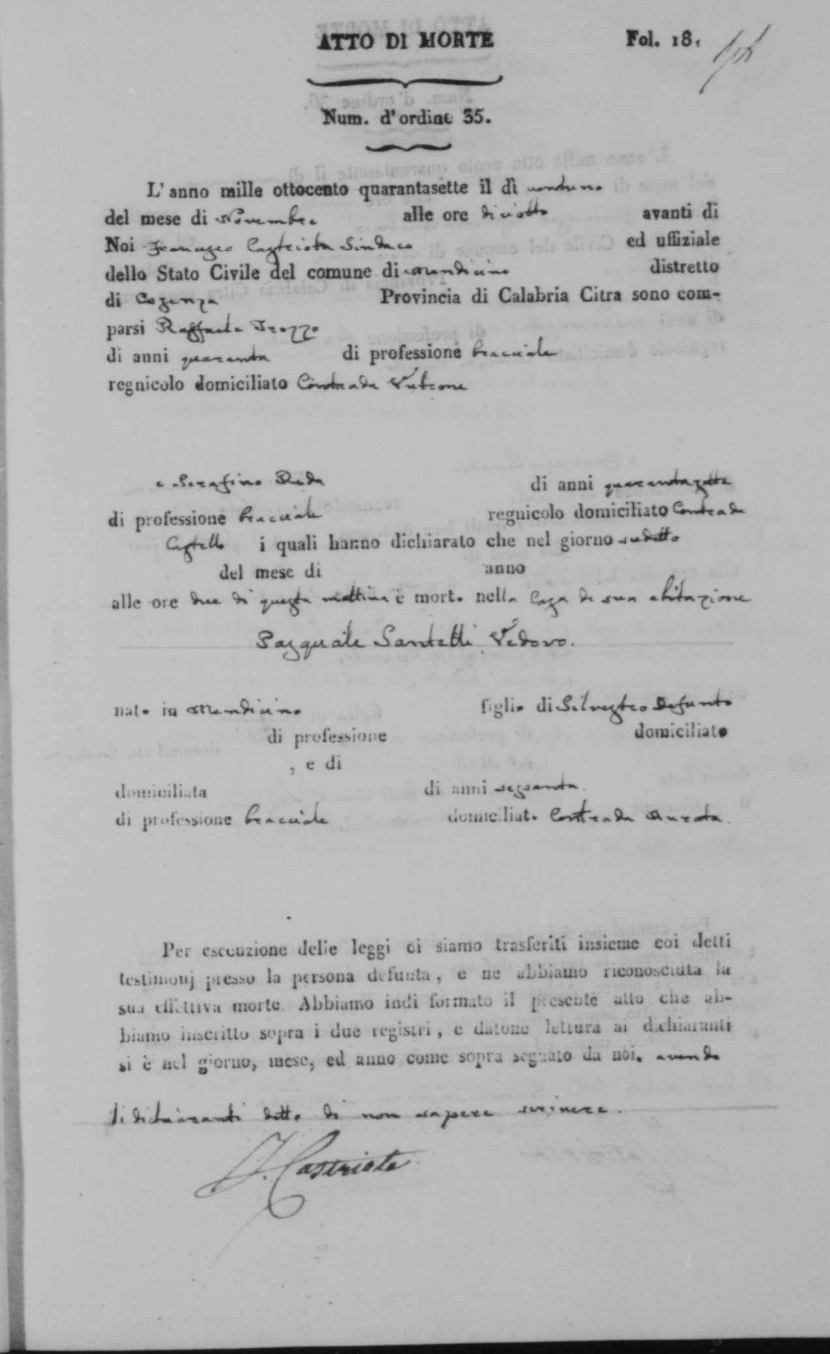 ATTO DI MORTE Fol. 18.
Num. d'ordine 35.
L'anno mille ottocento quarantasette il dì ventuno
del mese di Novembre alle ore diciotto avanti di
Noi Francesco Castriota Sindaco ed uffiziale
dello Stato Civile del comune di Mendicino distretto
di Cosenza Provincia di Calabria Citra sono com-
parsi Raffaele Trozzo
di anni quaranta di professione bracciale
regnicolo domiciliato Contrada
e Serafino Reda di anni quarantasette
di professione bracciale regnicolo domiciliato Contrada
Castello i quali hanno dichiarato che nel giorno sudetto
del mese di anno
alle ore due di questa mattina è mort. nella Casa di sua abitazione
Pasquale Santelli Vedovo.
nato in Mendicino figlio di Silvestro Defunto
di professione domiciliato
, e di
domiciliata di anni sessanta
di professione bracciale domiciliat. Contrada
Per esecuzione delle leggi ci siamo trasferiti insieme coi detti
testimonj presso la persona defunta, e ne abbiamo riconosciuta la
sua effettiva morte. Abbiamo indi formato il presente atto che ab-
biamo inscritto sopra i due registri, e datone lettura ai dichiaranti
si è nel giorno, mese, ed anno come sopra segnato da noi. avendo
li dichiaranti detto di non sapere scrivere.
F. Castriota